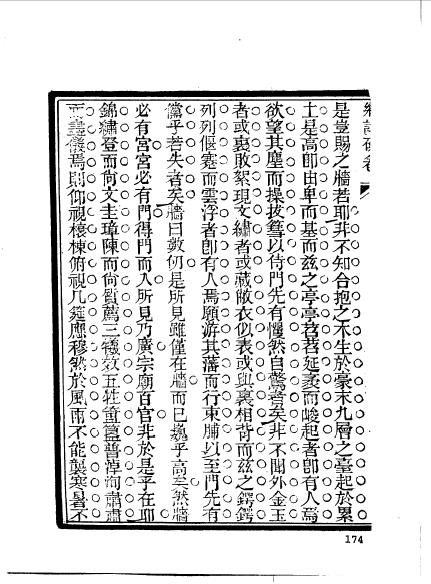 是豈賜之牆若耶非不知合抱之木生於豪末九層之臺起於累
土是高卽由卑而基而茲之亭亭苕苕延袤而峻起者卽有人焉
欲望其塵而操拔篲以待門先有愯然自驚者矣非不聞外金玉
者或裏敗絮現文繡者或藏敝衣似表或與裏相背而茲之鍔鍔
列列偃蹇而雲浮者卽有人焉願游其藩而行東脯以至門先有
儻乎若失者矣牆曰數仞是所見雖僅在牆而已巍乎高矣然牆
必有宮宮必有門得門而入所見乃廣宗廟百官非於是乎在耶
錦繡登而尙文圭璋陳而尙質薦三犧效五牲簠簋普淖洵肅肅
而義儀焉則仰視榱棟俯視几筵應穆然於風雨不能襲寒暑不
174